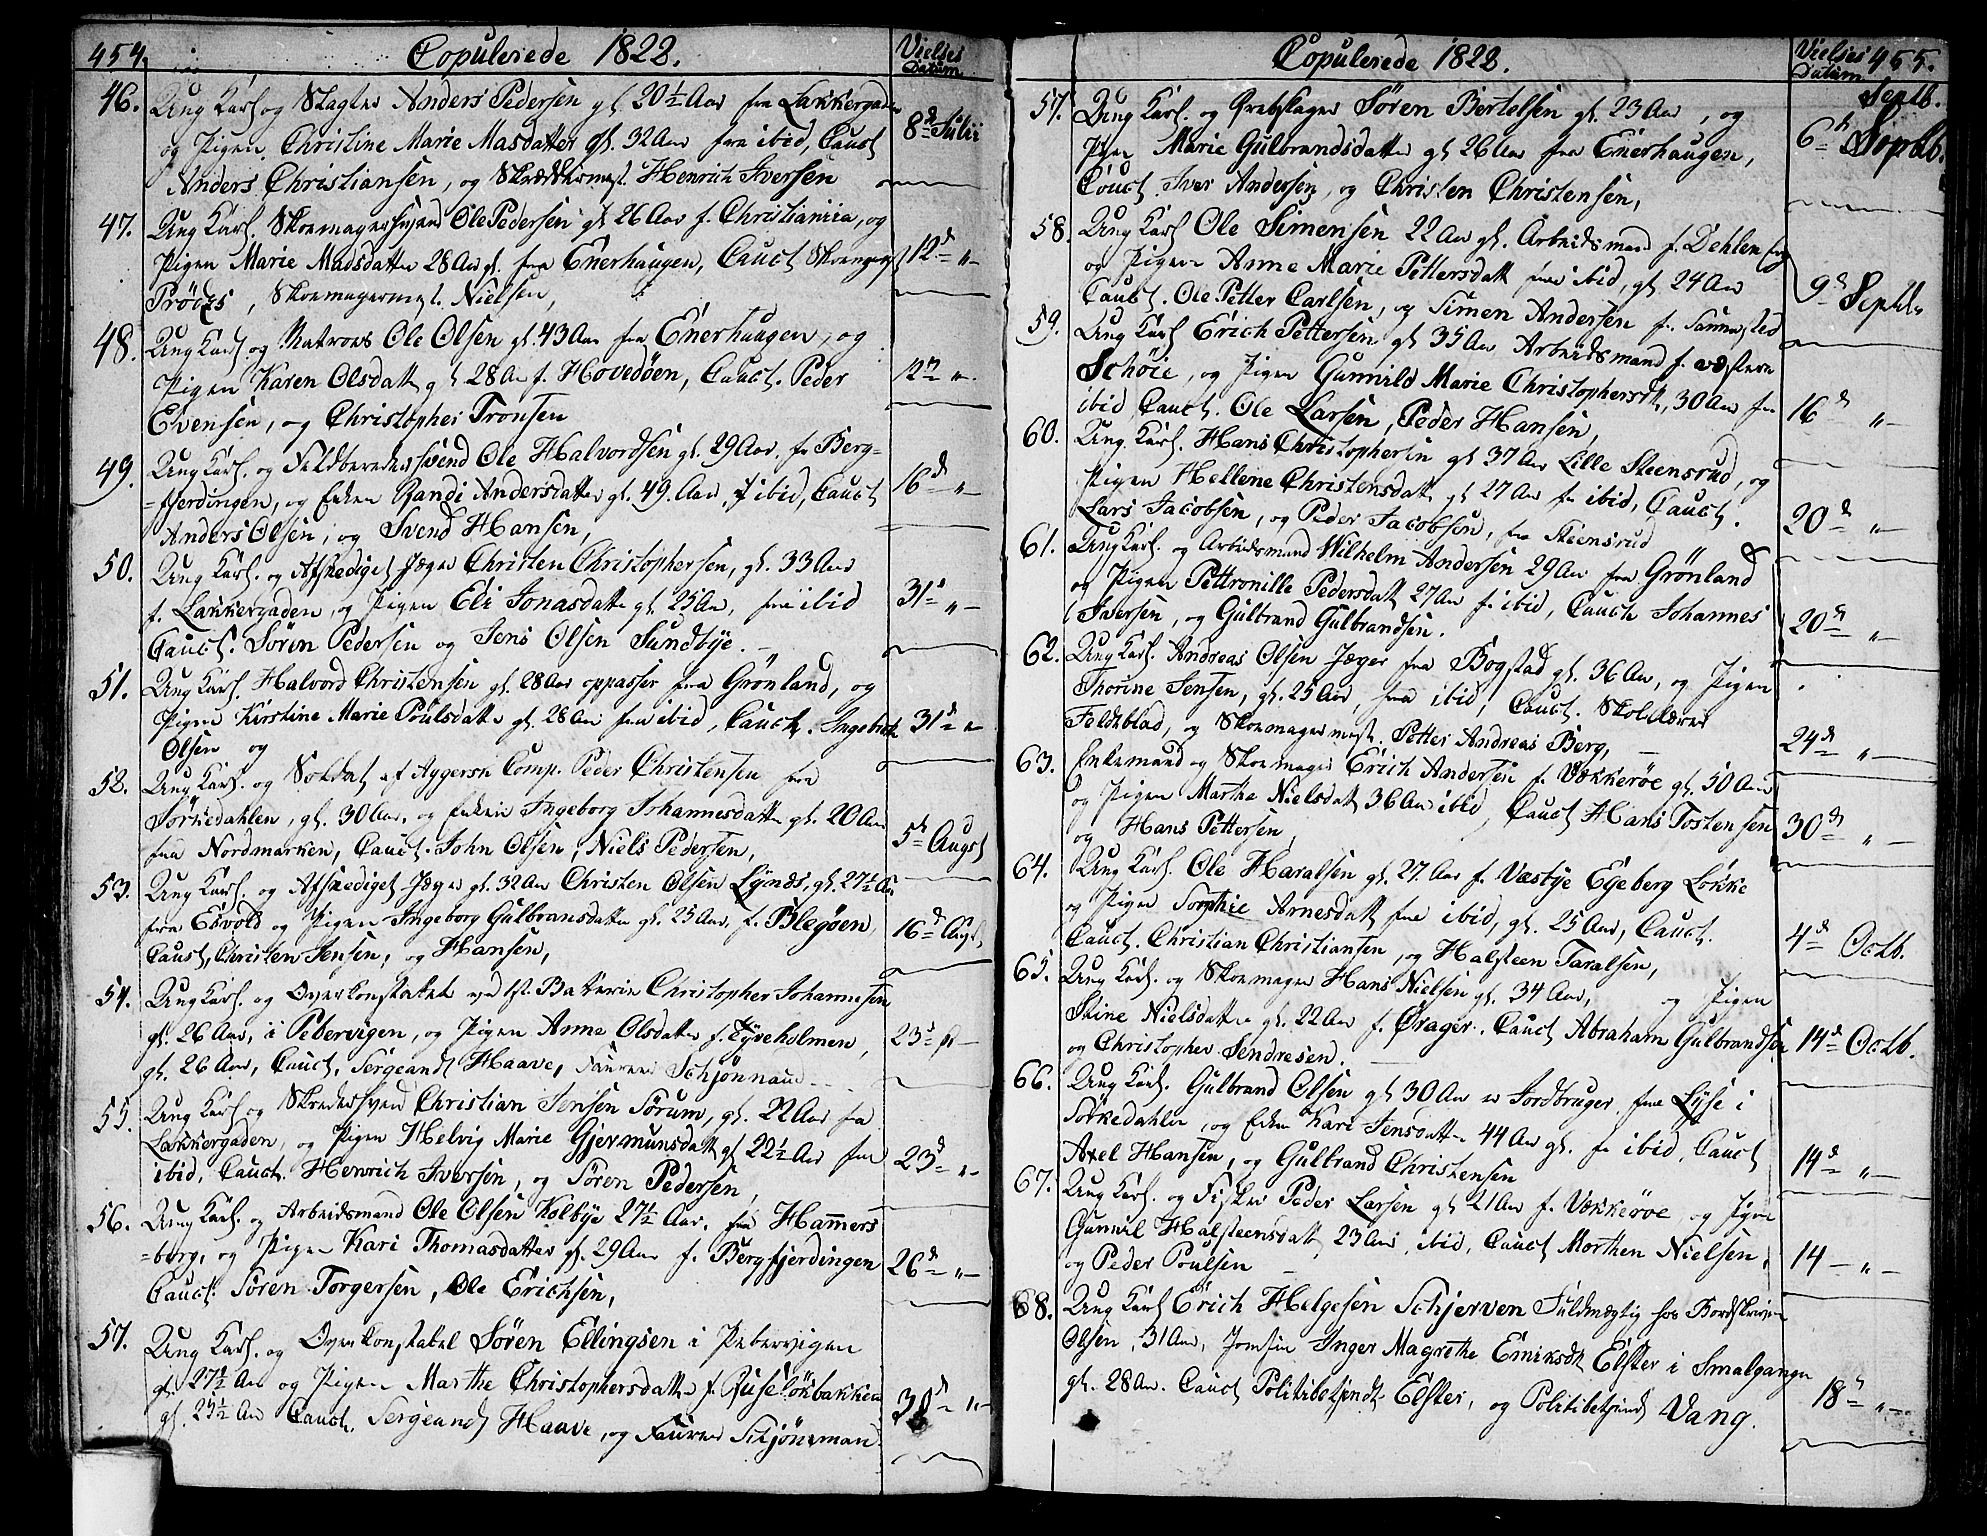 454.
Copulerede 1822.
Vielses
Datum
46. Ung Karl og Slagter Anders Pedersen gl. 20½ Aar fra Lakkergaden
og Pigen Christine Marie Masdatter gl. 32 Aar fra ibid, Cauct
Anders Christiansen, og Skræddermest. Henrich Iversen
8de Julii
47. Ung Karl. Skomagersvend Ole Pedersen gl. 26 Aar f. Christiania, og
Pigen Marie Madsdatter 28 Aar gl. fra Enerhaugen, Cauct
Skomagermest. Nielsen,
12d " —
48. Ung Karl og Matros Ole Olsen gl. 43 Aar fra Enerhaugen, og
Pigen Karen Olsdatt gl 28 Aar f. Hovedøen, Cauct. Peder
Evensen, og Christopher Tronsen
49. Ung Karl. og Feldberedersvend Ole Halvordsen gl. 29 Aar. fr Berg=
=fjerdingen, og Enken Randi Andersdatter gl. 49. Aar, f ibid, Cauct
Anders Olsen, og Svend Hansen,
16d " —
50. Ung Karl. og Afskediget Jæger Christen Christophersen, gl. 33 Aar
f. Lakkergaden, og Pigen Eli Jonasdatter gl 25 Aar, fra ibid
Cauct. Søren Pedersen og Jens Olsen Sundbye. —
31d " —
51. Ung Karl. Halvord Christensen gl. 28 Aar oppasser fra Grønland, og
Pigen Kirstine Marie Poulsdatter gl. 28 Aar fra ibid, Cauct. Ingebret
Olsen og
31d " —
52. Ung Karl. og Soldat af Aggersh Comp. Peder Christensen fra
Sørkedahlen, gl. 30 Aar, og Enken Ingeborg Johannesdatter gl. 20 Aar
fra Nordmarken, Cauct. John Olsen, Niels Pedersen,
5t Augst
53. Ung Karl. og Afskediget Jæger gl. 32 Aar Christen Olsen gl. 27½ Aar
fra og Pigen Ingeborg Gulbransdatter gl. 25 Aar, f. Blegøen,
Cauct, Christen Jensen, og Hansen,
16d Augst
54. Ung Karl. og Overkonstabel ved 1st. Batterie Christopher Johannesen
gl. 26 Aar, i Pebervigen, og Pigen Anne Olsdatter f. Tyveholmen,
gl. 26 Aar, Cauct. Sergeant Haave,
23d
55. Ung Karl og Skredersvend Christian Jensen Sørum, gl. 22 Aar fra
Lakkergaden, og Pigen Helvig Marie Gjermunsdatt gl 22½ Aar fra
ibid, Cauct. Henrich Iversen, og Søren Pedersen,
23d " —
56. Ung Karl. og Arbeidsmand Ole Olsen Kolbye 27½ Aar. fra Hammers
=borg, og Pigen Kari Thomasdatter gl. 29 Aar f. Bergfjerdingen
Cauct. Søren Torgersen, Ole Erichsen,
26d " —
57. Ung Karl. og Overkonstabel Søren Ellingsen i Pebervigen
gl. 27½ Aar og Pigen Marthe Christophersdatter f. Ruseløkbakken
gl. 23½ Aar Cauct. Sergeandt Haave, og
30d " —
Copulerede 1822.
Vielses
Datum
455.
Septb.
57. Ung Karl. og Gravtager Søren Bertelsen gl. 23 Aar, og
Pigen Marie Gulbrandsdatter gl 26 Aar fra Enerhaugen,
Cauct. Iver Andersen, og Christen Christensen,
6t Septb.
58. Ung Karl Ole Simensen 22 Aar gl. Arbeidsmand f. Dehlen
og Pigen Anne Marie Pettersdatt fra ibid, gl 24 Aar
Cauct. Ole Petter Carlsen, og Simen Andersen fr.
9d Septb.
59. Ung Karl Erich Pettersen gl 35 Aar Arbeidsmand f. vestern
Schøie, og Pigen Gunnild Marie Christophersdt, 30 Aar fra
ibid Cauct. Ole Larsen, Peder Hansen,
16d " —
60. Ung. Karl. Hans Christophersen gl 37 Aar Lille Steensrud, og
Pigen Hellene Christensdatt gl 27 Aar fr ibid, Cauct.
Lars Jacobsen, og Peder Jacobsen, fra Steensrud
20d " —
61. Ung Karl. og Arbeidsmand Wilhelm Andersen 29 Aar fra Grønland
og Pigen Pettronille Pedersdatt 27 Aar f. ibid, Cauct Johannes
Iversen, og Gulbrand Gulbrandsen.
20d " —
62. Ung Karl. Andreas Olsen Jæger fra Bogstad gl. 36 Aar, og Pigen
Thorine Jensen, gl. 25 Aar, fra ibid, Cauct. Skolelærer
Feldeblad, og Skomagermest. Petter Andreas Berg, —
24d " —
63. Enkemand og Skomager Erich Andersen f. Vækkerøe gl. 50 Aar
og Pigen Marthe Nielsdatt 36 Aar ibid, Cauct Hans Tostensen
og Hans Pettersen,
30d " —
64. Ung Karl. Ole Haralsen gl. 27. Aar f. Væstye Egeberg Løkke
og Pigen Sophie Arnesdatt fra ibid, gl. 25 Aar, Cauct.
Cauct. Christian Christiansen, og Halsteen Taralsen,
4d Octb.
65. Ung Karl. og Skomager Hans Nielsen gl. 34 Aar, og Pigen
Stine Nielsdatter gl. 22 Aar f. Ørager. Cauct Abraham Gulbrandsen
og Christopher Sendresen. —
14d Octb.
66. Ung Karl. Gulbrand Olsen gl 30 Aar er Jordbruger fra Lyse i
Sørkedahlen, og Enken Kari Jensdatter 44 Aar gl. fr ibid, Cauct
Axel Hansen, og Gulbrand Christensen
14d " —
67. Ung Karl. og Fisker Peder Larsen gl 21 Aar f. Vækkerøe og Pigen
Gunnil Halsteensdatt, 23 Aar, ibid, Cauct Morthen Nielsen,
og Peder Poulsen
14 — " —
68. Ung Karl Erich Helgesen Schjerven Fuldmægtig hos Bordskriver
Olsen, 31 Aar, Jomfru Inger Magrethe Emiksdt Elster i Smalgangen
gl. 28 Aar. Cauct Politibetjendt Elster, og Politibetjendt Vang.
18d " —